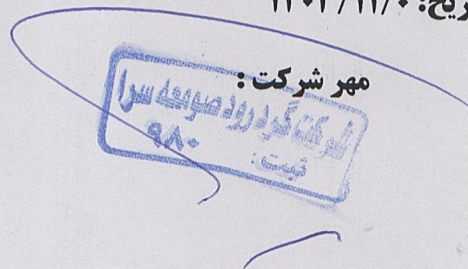 مهر شرکت :
شرکت گرد رود صومعه سرا
ثبت : ۹۸۰